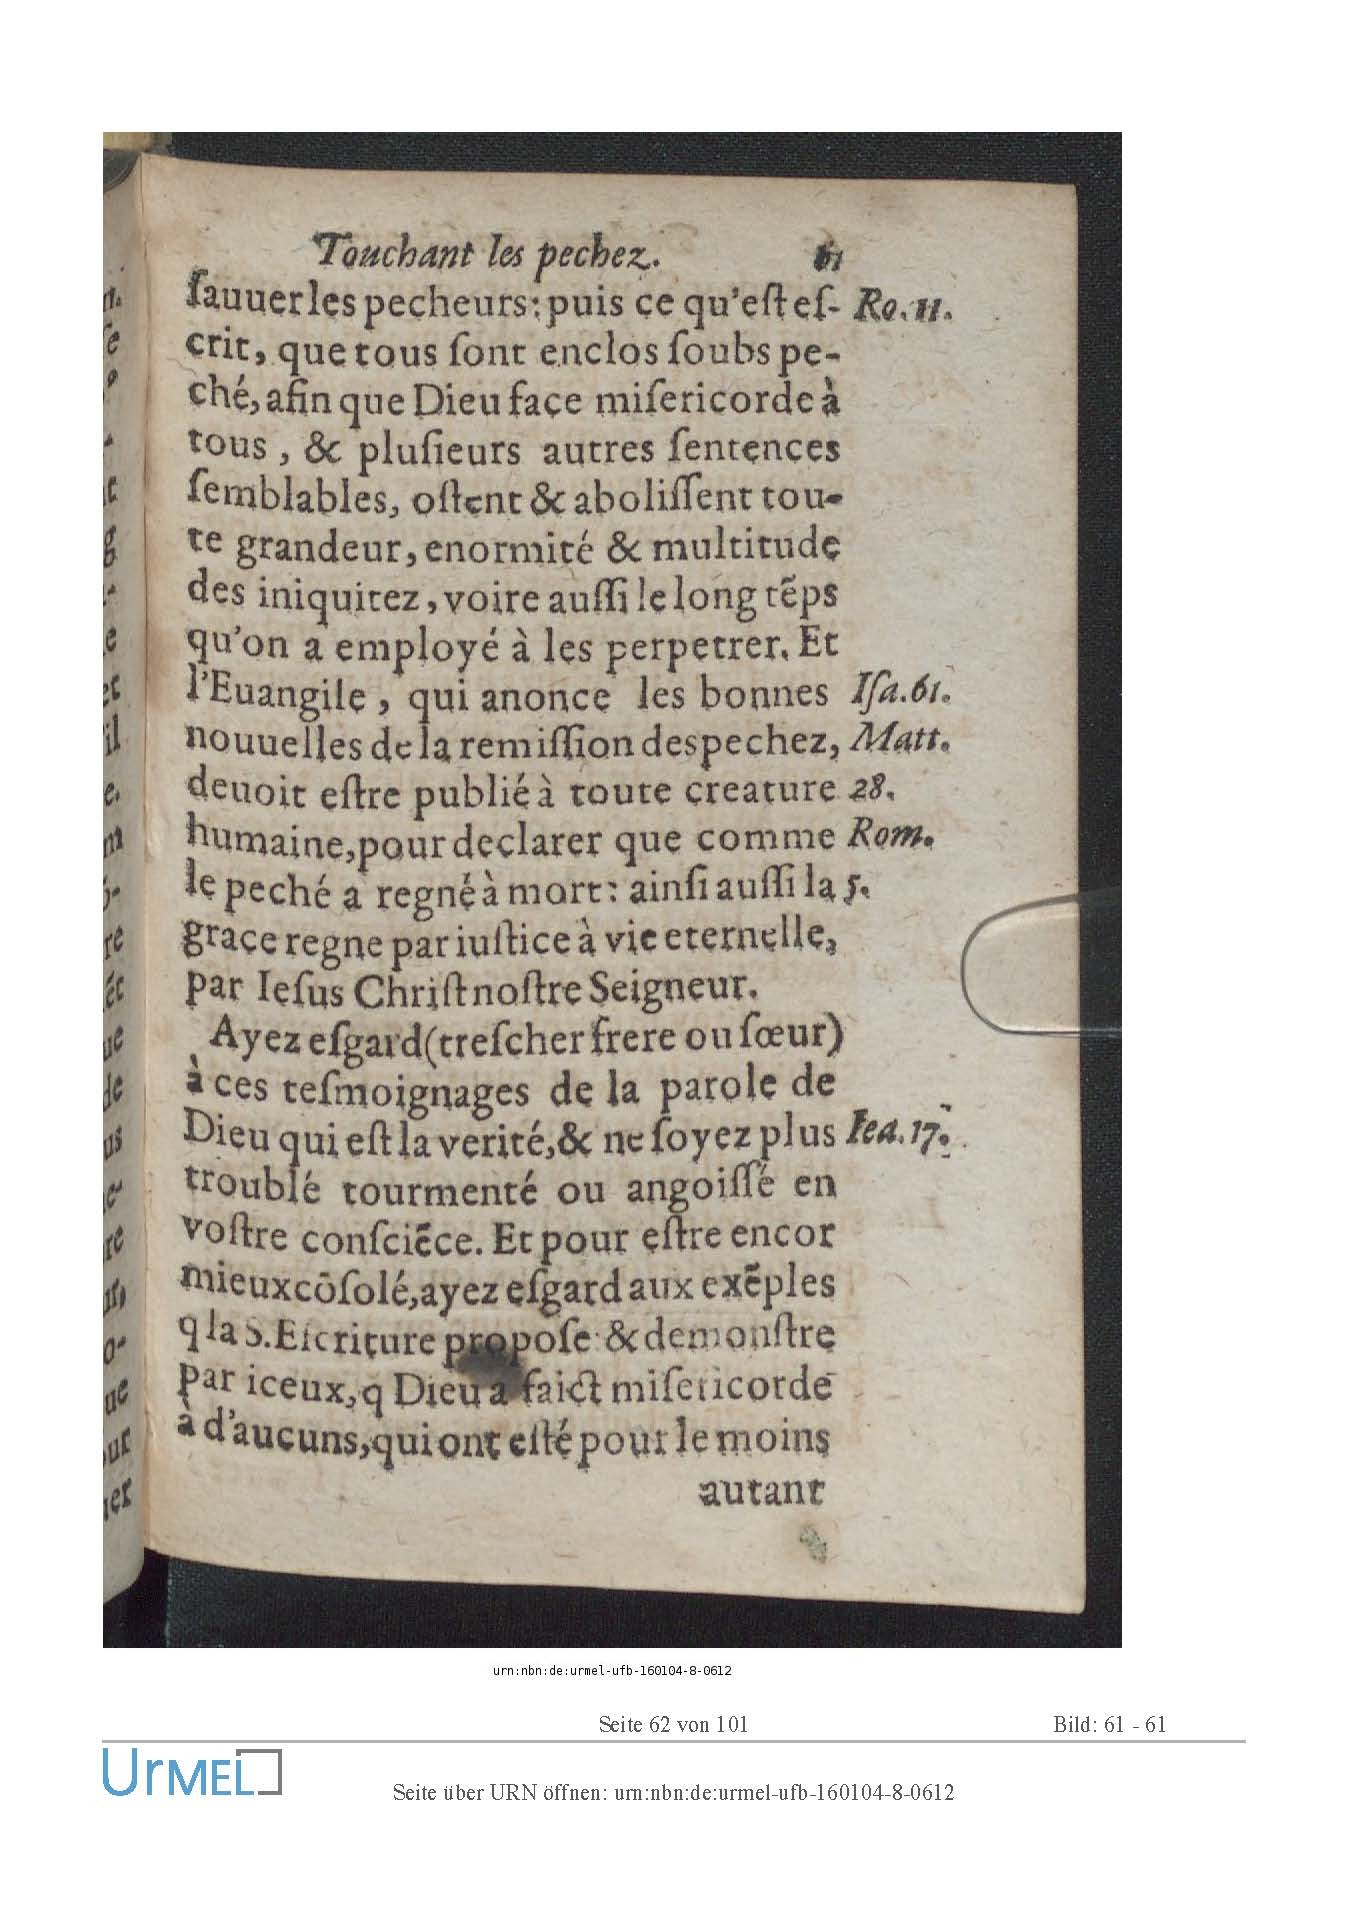 Touchant les pechez. 61
ſauuer les pecheurs: puis ce qu'eſt eſ- Ro. 11.
crit, que tous ſont enclos ſoubs pe-
ché, afin que Dieu face miſericorde à
tous, & pluſieurs autres ſentences
ſemblables, oſtent & aboliſſent tou-
te grandeur, enormité & multitude
des iniquitez, voire auſſi le long tẽps
qu'on a employé à les perpetrer. Et
l'Euangile, qui anonce les bonnes Iſa. 61.
nouuelles de la remiſſion des pechez, Matt.
deuoit eſtre publié à toute creature 28.
humaine, pour declarer que comme Rom.
le peché a regné à mort: ainſi auſſi la 5.
grace regne par iuſtice à vie eternelle,
par Ieſus Chriſt noſtre Seigneur.
Ayez eſgard (treſcher frere ou ſœur)
à ces teſmoignages de la parole de
Dieu qui eſt la verité, & ne ſoyez plus Iea. 17.
troublé tourmenté ou angoiſſé en
voſtre conſciẽce. Et pour eſtre encor
mieux cõſolé, ayez eſgard aux exẽples
q la S. Eſcriture propoſe & demonſtre
par iceux, q Dieu a faict miſericorde
à d'aucuns, qui ont eſté pour le moins
autant
urn:nbn:de:urmel-ufb-160104-8-0612
Seite 62 von 101 Bild: 61 - 61
UrMEL
Seite über URN öffnen: urn:nbn:de:urmel-ufb-160104-8-0612